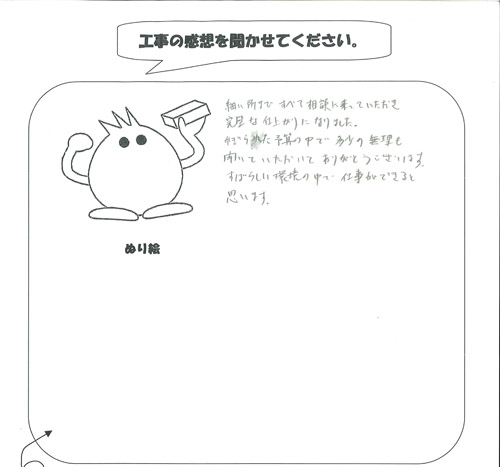 工事の感想を聞かせてください。
細い所まで すべて相談に乗っていただき
完璧な仕上がりになりました。
かぎられた予算の中で 多少の無理も
聞いていただいて ありがとうございます。
すばらしい環境の中で 仕事ができると
思います。
ぬり絵